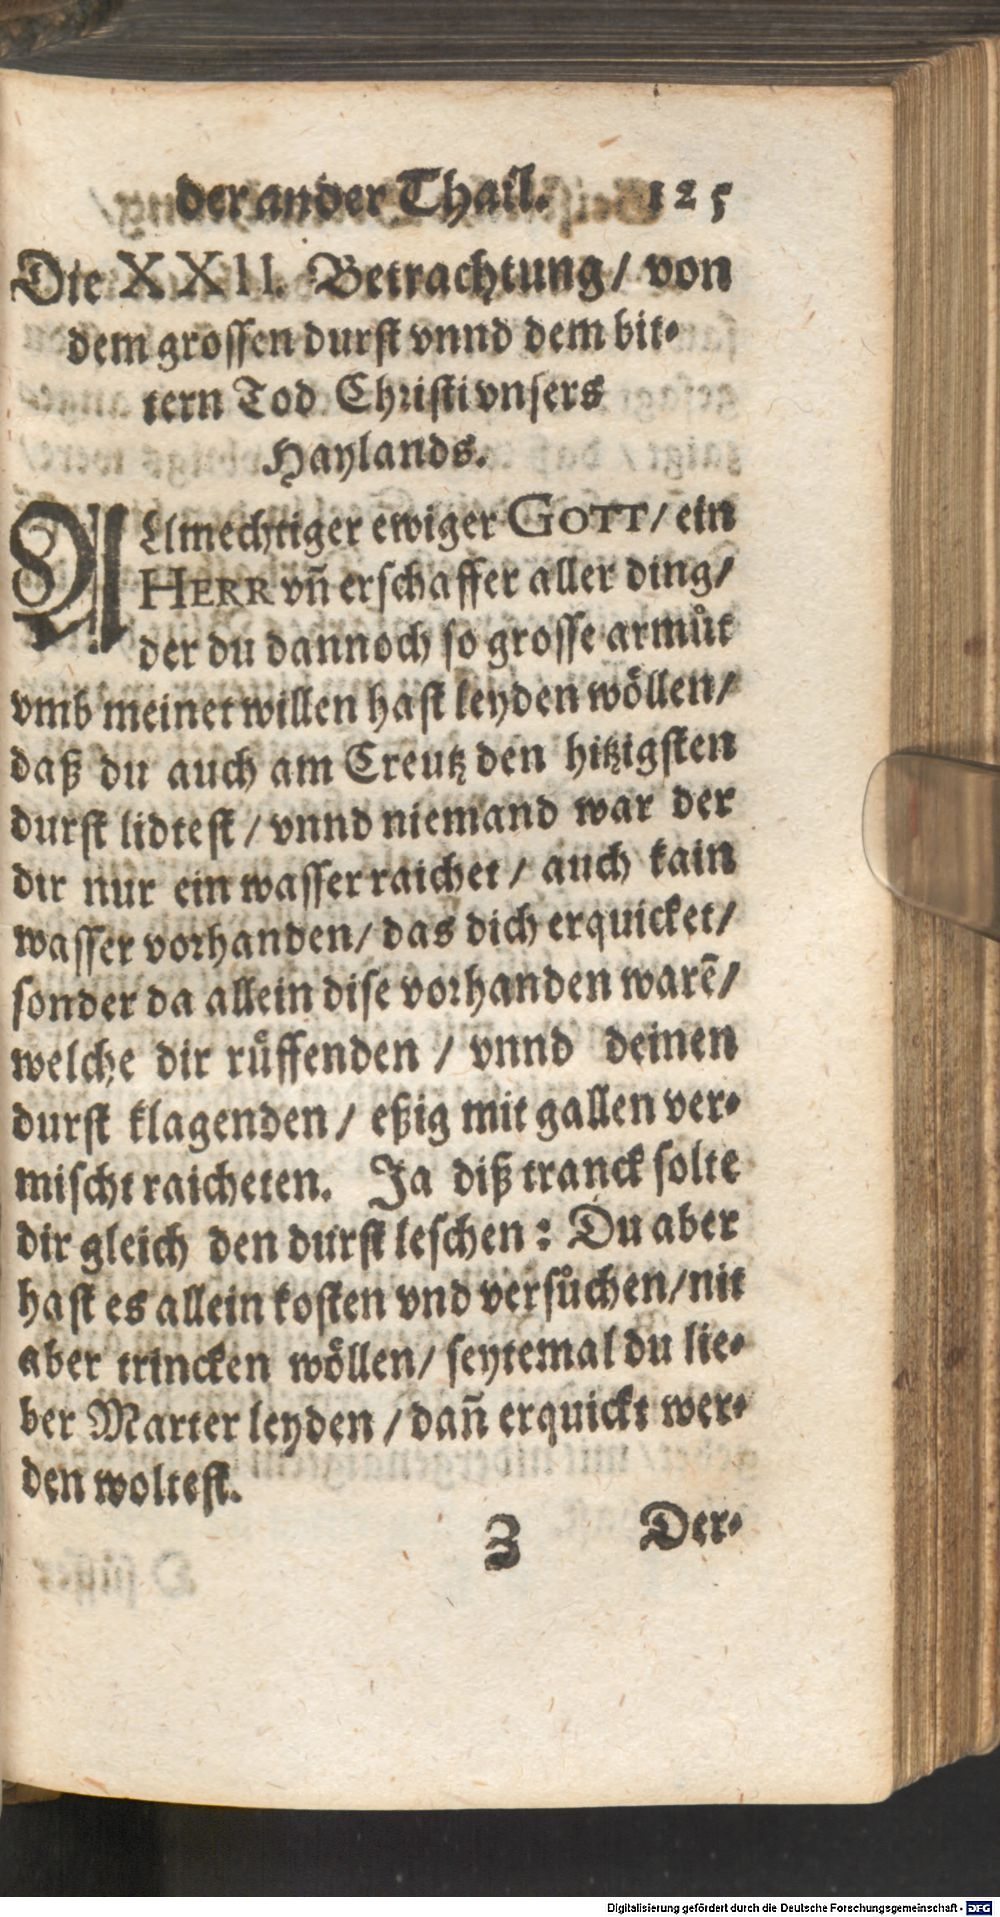 der ander Thail. 125
Die XXII. Betrachtung/ von
dem grossen durst vnnd dem bit-
tern Tod Christi vnsers
Haylands.
ALlmechtiger ewiger GOTT/ ein
HERR vñ erschaffer aller ding/
der du dannoch so grosse armůt
vmb meinet willen hast leyden wöllen/
daß du auch am Creutz den hitzigsten
durst lidtest/ vnnd niemand war der
dir nur ein wasser raichet/ auch kain
wasser vorhanden/ das dich erquicket/
sonder da allein dise vorhanden warẽ/
welche dir růffenden/ vnnd deinen
durst klagenden/ eßig mit gallen ver-
mischt raicheten. Ja diß tranck solte
dir gleich den durst leschen: Du aber
hast es allein kosten vnd versůchen/ nit
aber trincken wöllen/ seytemal du lie-
ber Marter leyden/ dañ erquickt wer-
den woltest.
Z Der-
Digitalisierung gefördert durch die Deutsche Forschungsgemeinschaft - DFG